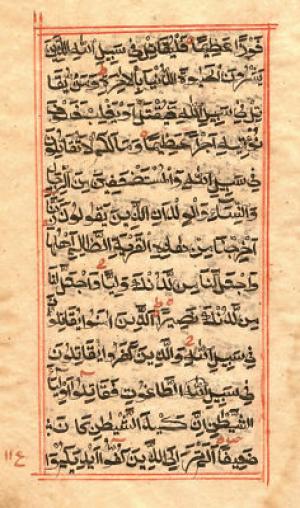 فوزا عظيما فليقاتل في سبيل الله الذين
يشرون الحيوة الدنيا بالاخرة ومن يقا
تل في سبيل الله فيقتل او يغلب فسوف
نؤتيه اجرا عظيما وما لكم لا تقاتلون
في سبيل الله والمستضعفين من الرجال
والنساء والولدان الذين يقولون ربنا
اخرجنا من هذه القرية الظالم اهلها
واجعل لنا من لدنك وليا واجعل لنا
من لدنك نصيرا الذين امنوا يقاتلون
في سبيل الله والذين كفروا يقاتلون
في سبيل الطاغوت فقاتلوا اولياء
الشيطن ان كيد الشيطن كان
ضعيفا الم تر الى الذين كفوا ايديكم وا
ع ١١